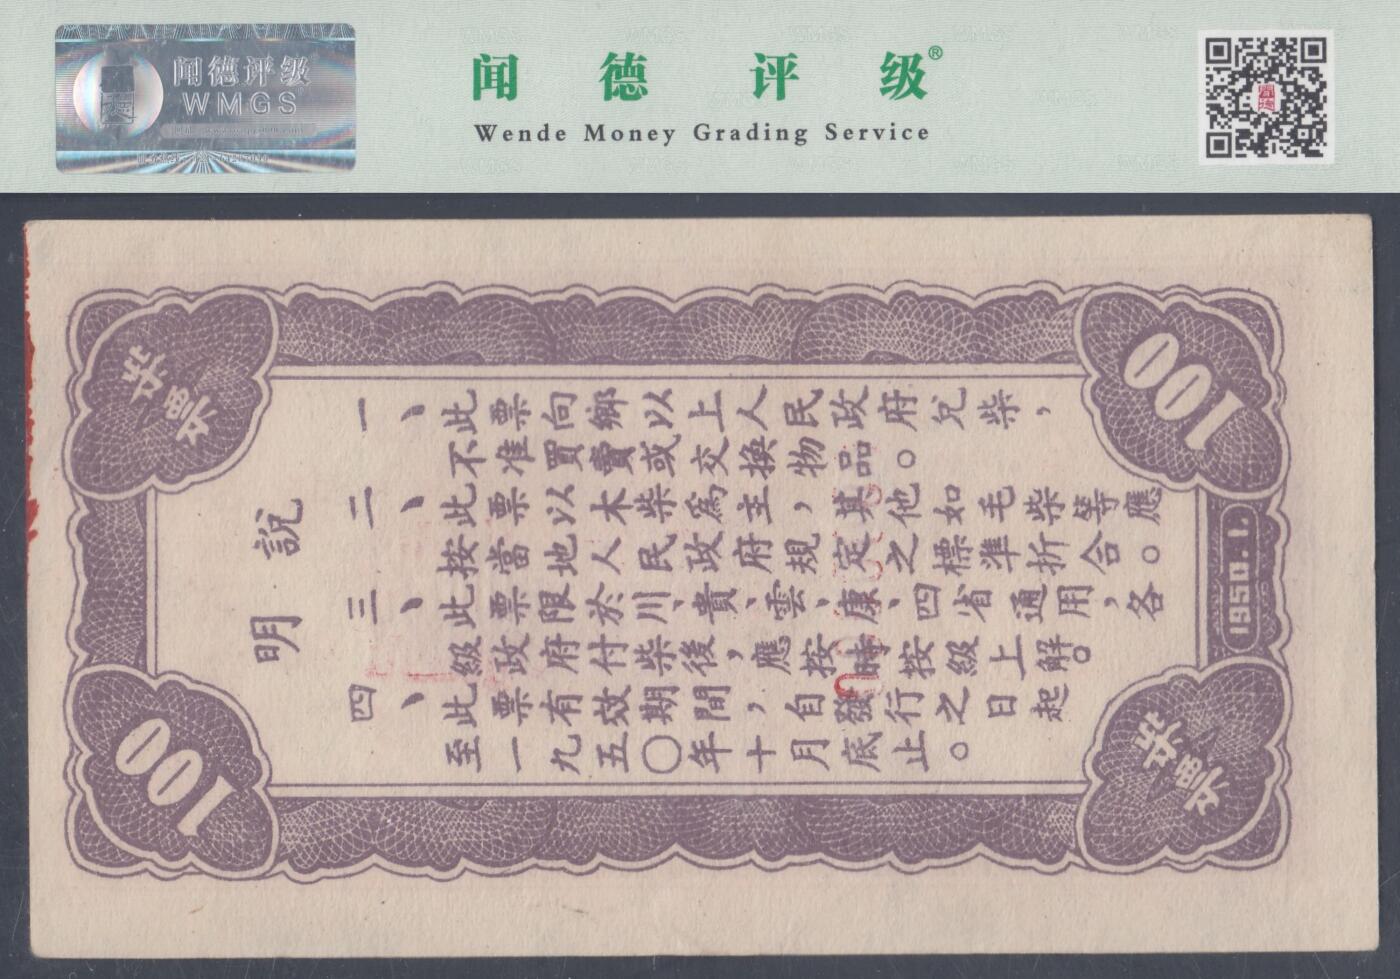 闻德评级
WMGS
闻德评级®
Wende Money Grading Service
100
100
說明
一、此票向鄉以上人民政府兌柴，
不准買賣或交換物品。
二、此票以木柴為主，其他如毛柴等應
按當地人民政府規定之標準折合。
三、此票限於川、貴、雲、康、四省通用，各
級政府付柴後，應按時按級上解。
四、此票有效期間，自發行之日起
至一九五〇年十月底止。
1950.1.